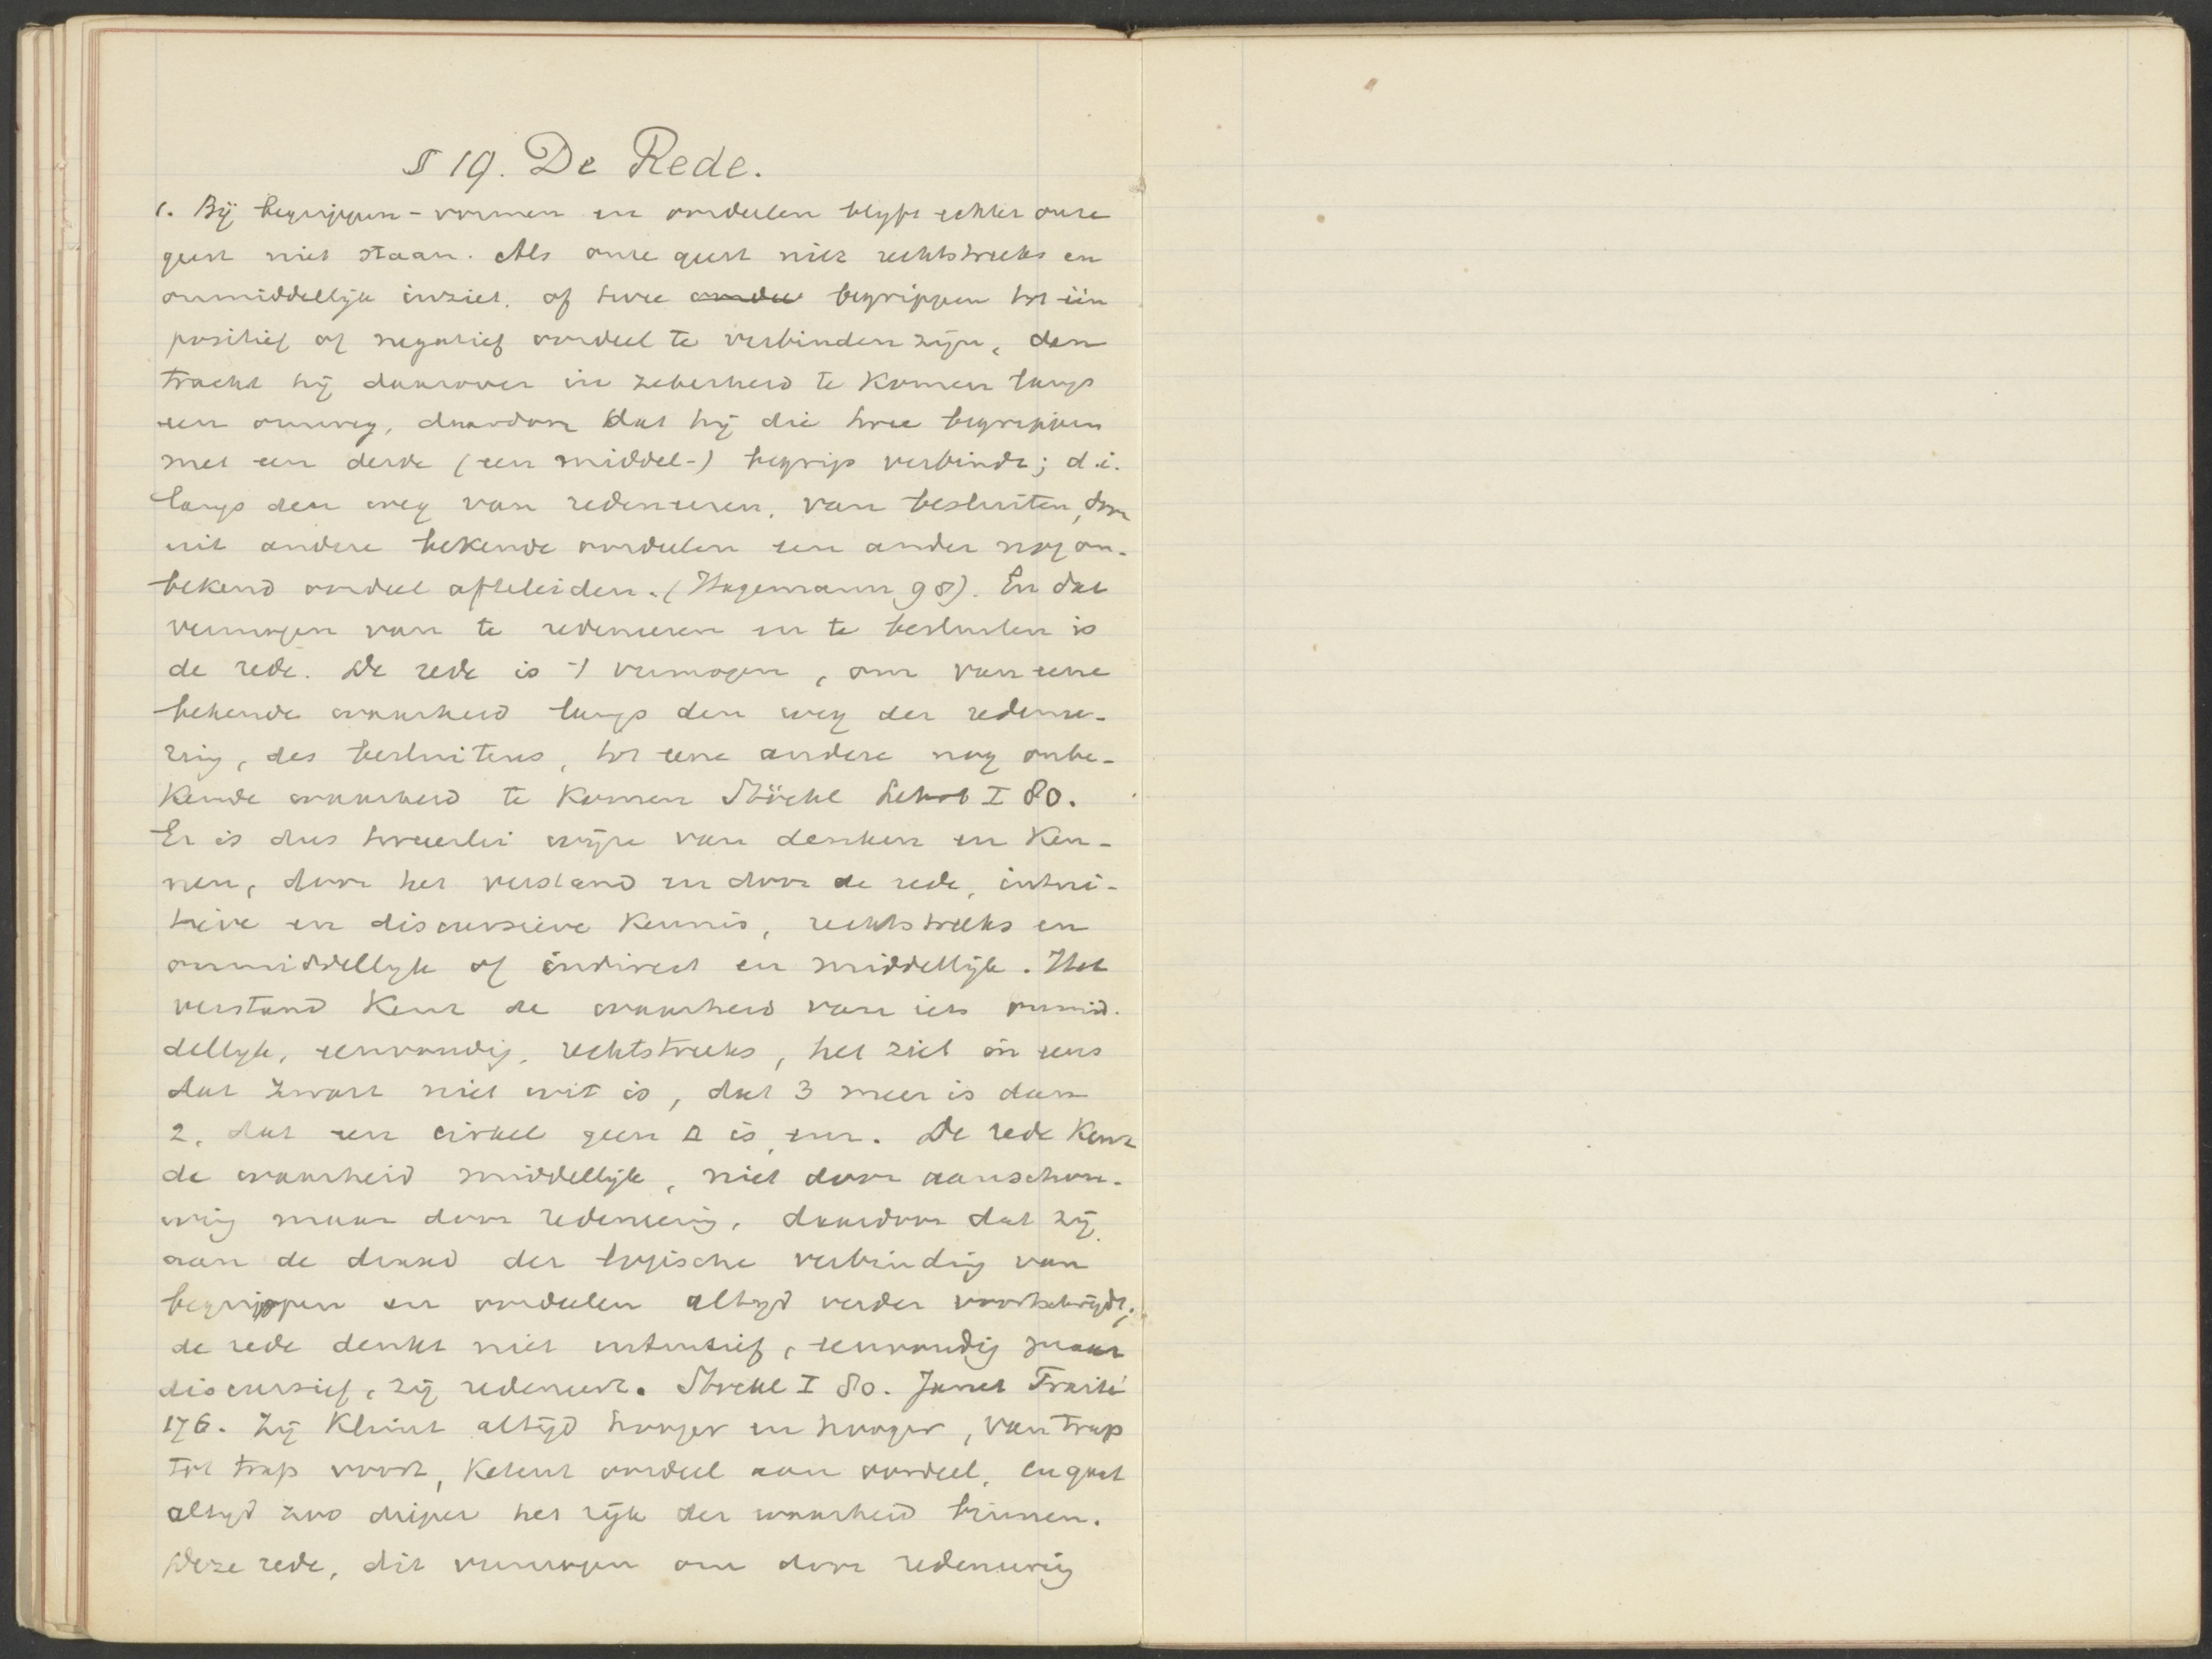 § 19. De Rede.
1. Bij begrippen-vormen en oordeelen blyft echter onze
geest niet staan. Als onze geest niet rechtstreeks en
onmiddellijk inziet, of twee begrippen tot één
positief of negatief oordeel te verbinden zijn, dan
tracht hij daarover in zekerheid te komen langs
een omweg, daardoor dat hij die twee begrippen
met een derde (een middel-) begrip verbindt; d.i.
langs den weg van redeneeren, van besluiten, door
uit andere bekende oordeelen een ander nog on-
bekend oordeel afteleiden. (Hagemann 98). En dat
vermogen van te redeneeren en te besluiten is
de rede. De rede is 't vermogen, om van eene
bekende waarheid langs den weg der redenee-
ring, des besluitens, tot eene andere nog onbe-
kende waarheid te komen Stöckl Lehrb I 80.
Er is dus tweeërlei wijze van denken en ken-
nen, door het verstand en door de rede, intuï-
tieve en discursieve kennis, rechtstreeks en
onmiddellyk of indirect en middellijk. Het
verstand kent de waarheid van iets onmid-
dellyk, eenvoudig, rechtstreeks, het ziet in eens
dat zwart niet wit is, dat 3 meer is dan
2, dat een cirkel geen Δ is, enz. De rede kent
de waarheid middellijk, niet door aanschou-
wing maar door redeneering, daardoor dat zij
aan de draad der logische verbinding van
begrippen en oordeelen altyd verder voortschrijdt;
de rede denkt niet intuitief, eenvoudig maar
discursief, zij redeneert. Stöckl I 80. Janet Traité
176. Zij klimt altijd hooger en hooger, van trap
tot trap voort, ketent oordeel aan oordeel, en gaat
altyd zoo dieper het rijk der waarheid binnen.
Deze rede, dit vermogen om door redeneering